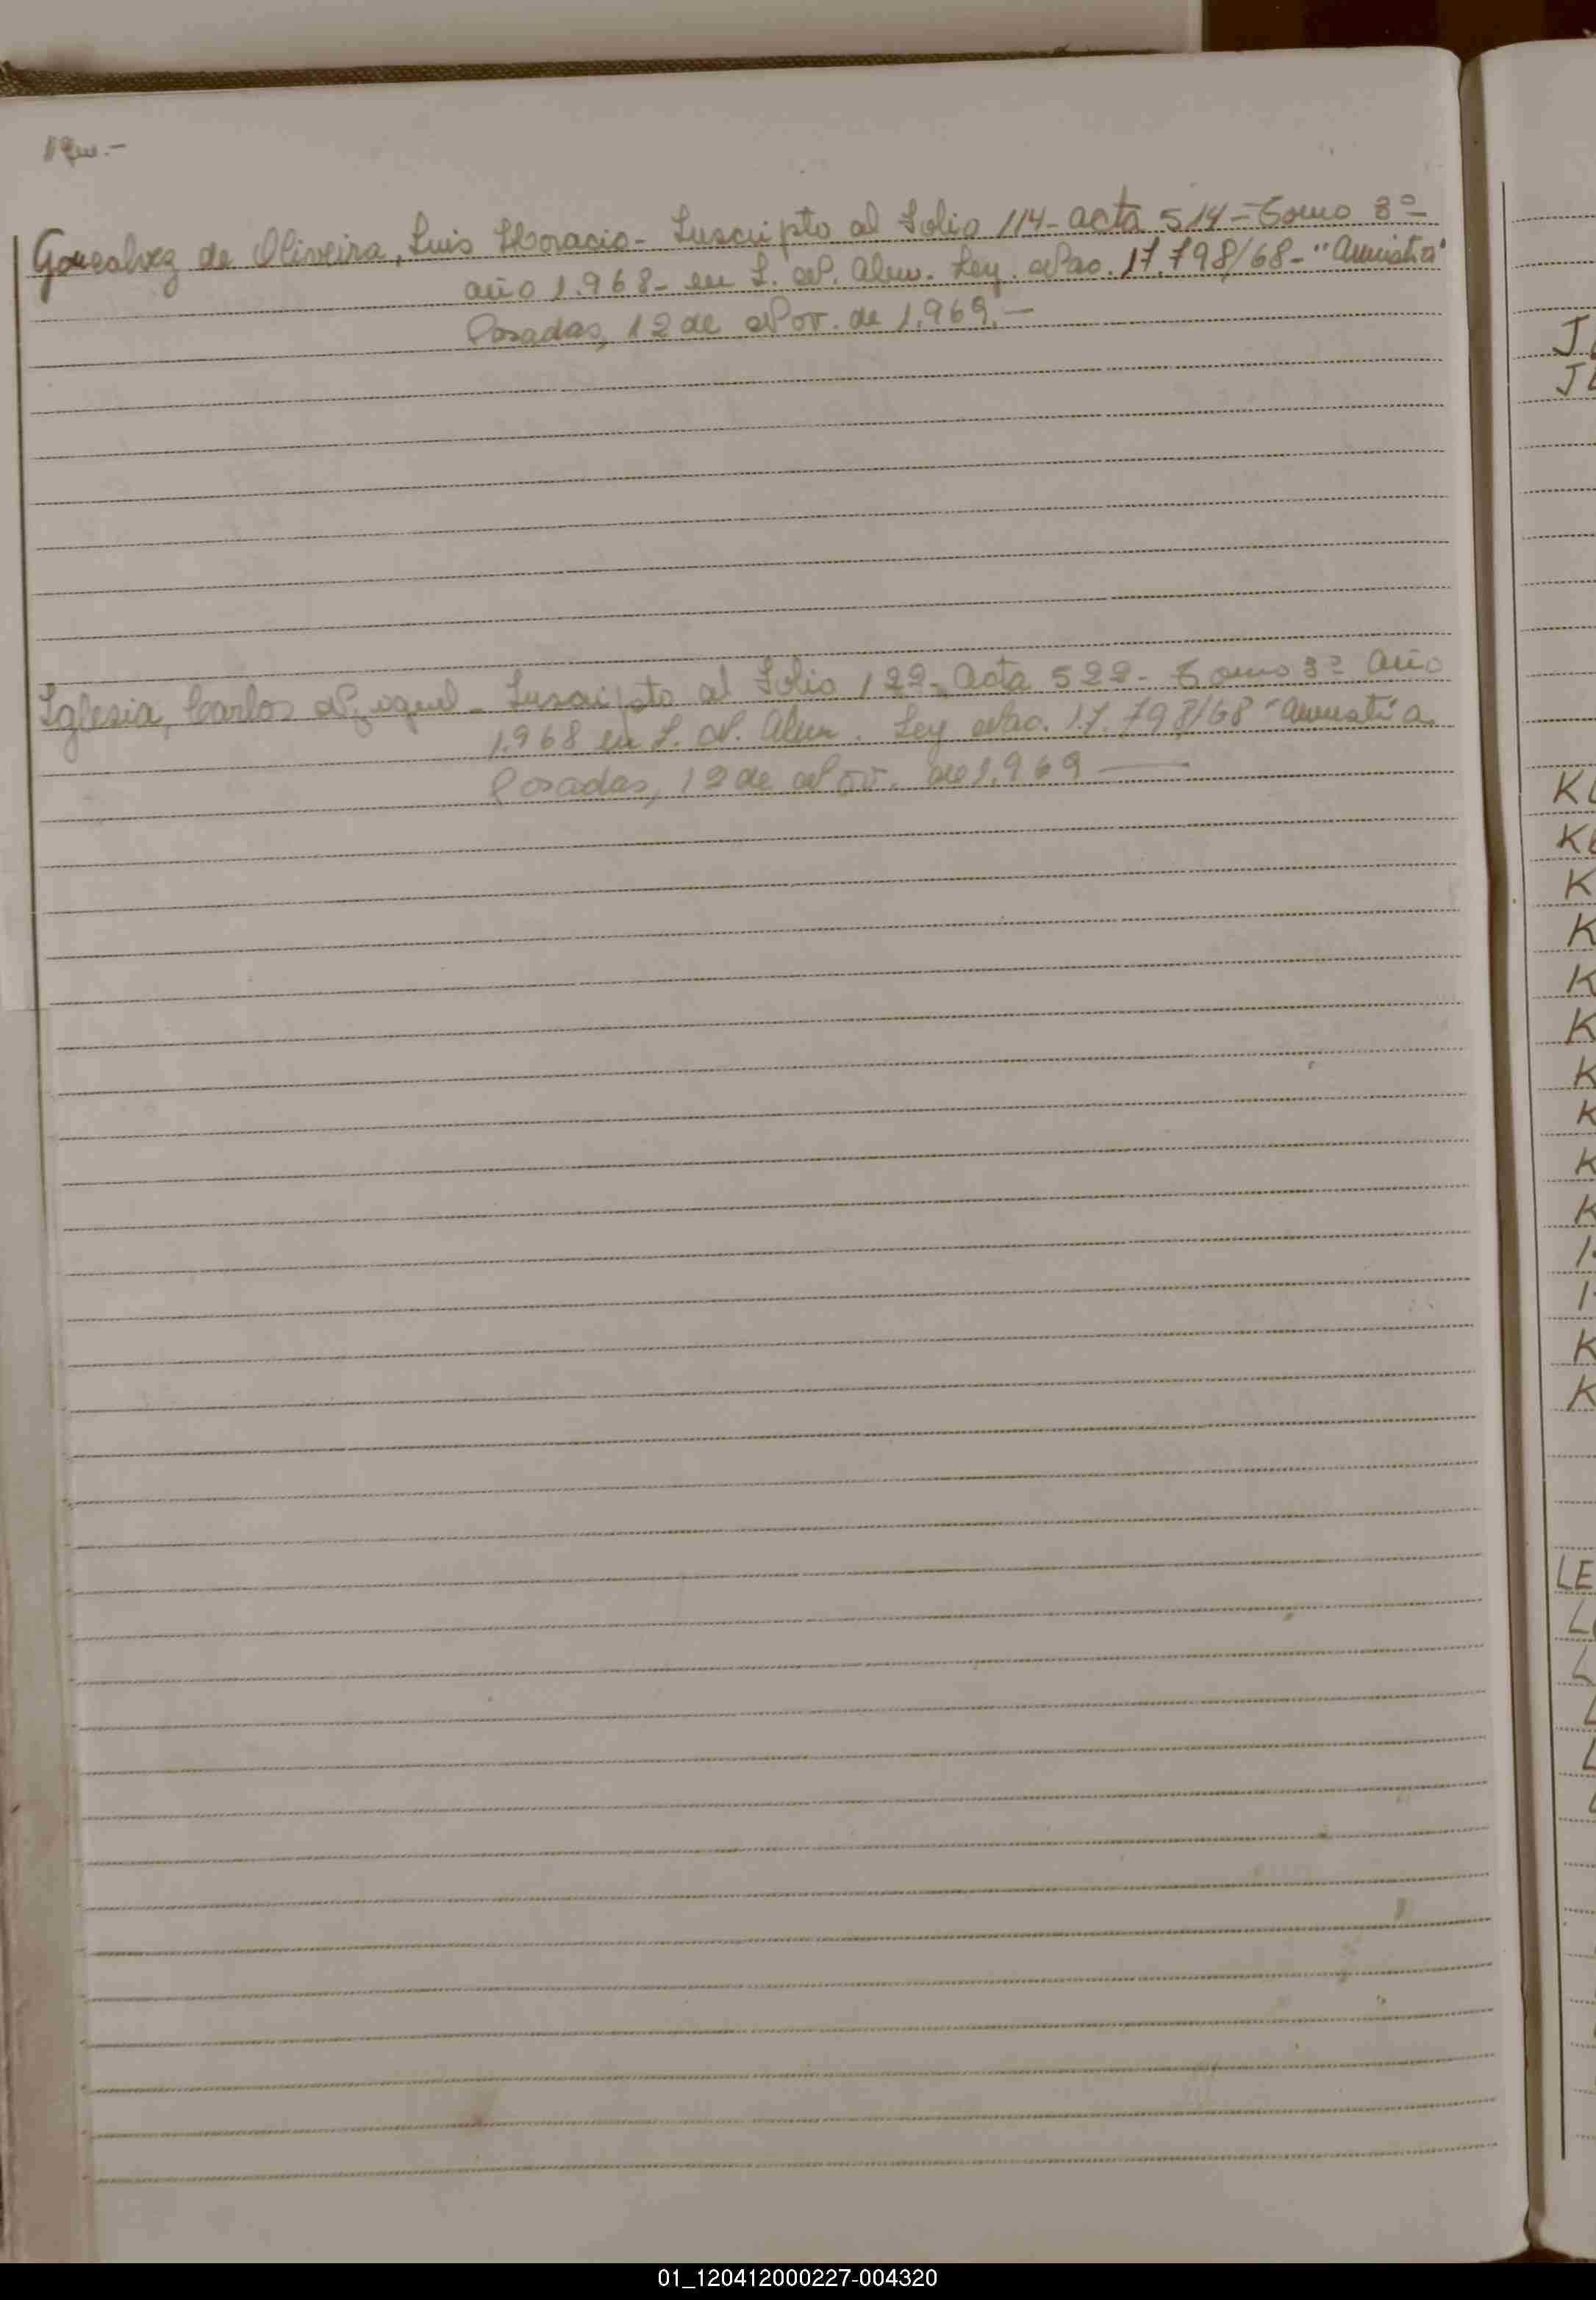 Gonçalvez de Oliveira, Luis Horacio - Inscripto al Folio 114 - acta 514 - Tomo 3º -
año 1.968 - en L. N. Alem. Ley. Nac. 17.798/68 - "Amnistia"
Posadas, 12 de Nov. de 1.969. -
Iglesia, Carlos Miguel - Inscripto al Folio 122 - acta 522 - Tomo 3º año
1.968 en L. N. Alem. Ley Nac. 17.798/68 "Amnistia
Posadas, 12 de Nov. de 1.969 —
J
J
K
K
K
K
K
K
K
K
K
K
K
K
LE
L
L
L
L
01_120412000227-004320